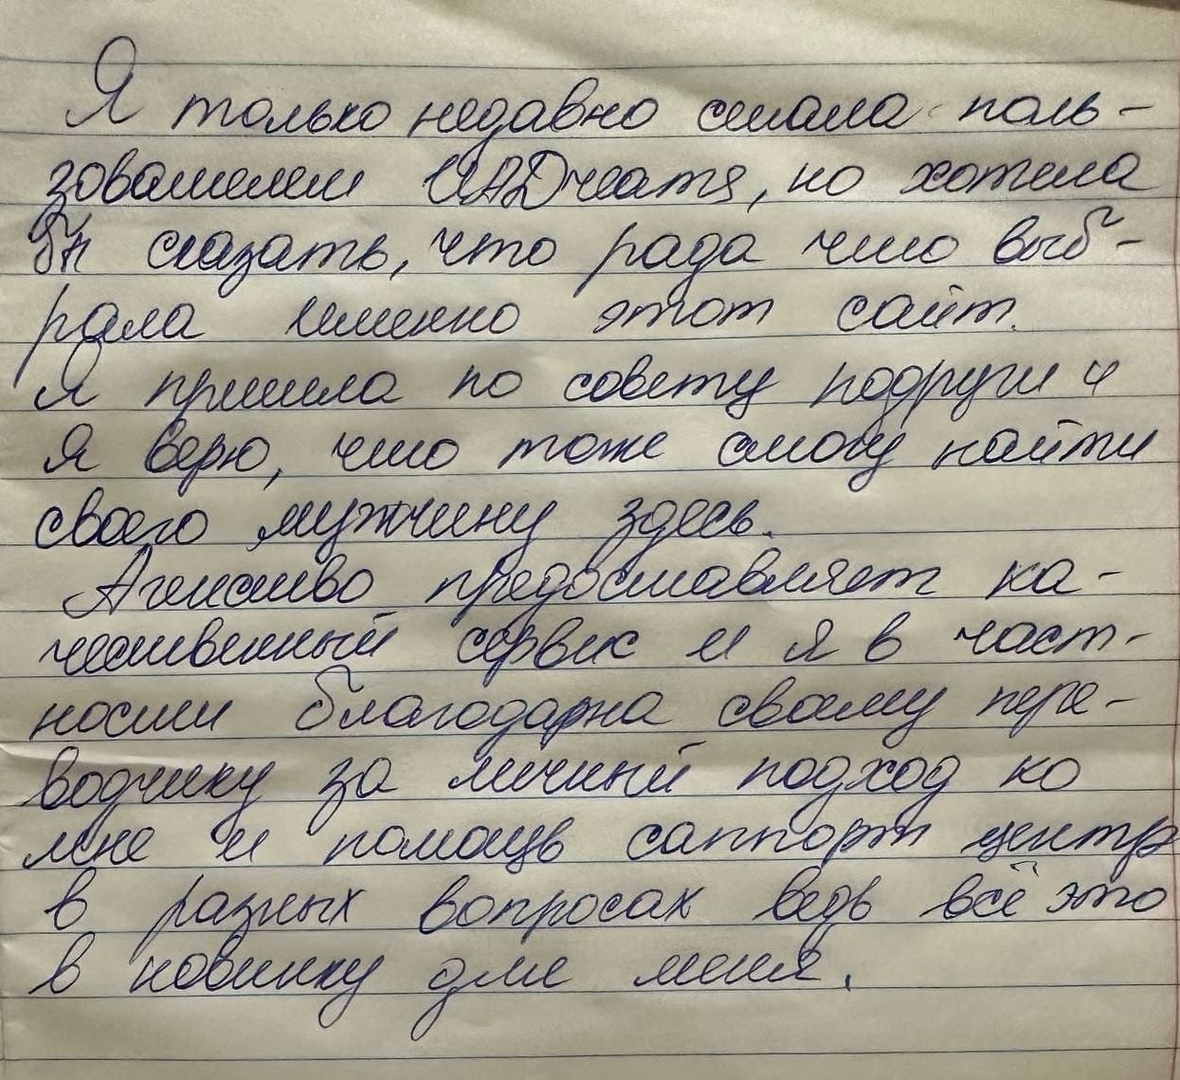 Я только недавно стала поль-
зователем UADreams, но хотела
бы сказать, что рада что выб-
рала именно этот сайт.
Я пришла по совету подруги и
я верю, что тоже смогу найти
своего мужчину здесь.
Агенство предоставляет ка-
чественный сервис и я в част-
ности благодарна своему пере-
водчику за личный подход ко
мне и помощь саппорт центра
в разных вопросах ведь всё это
в новинку для меня.